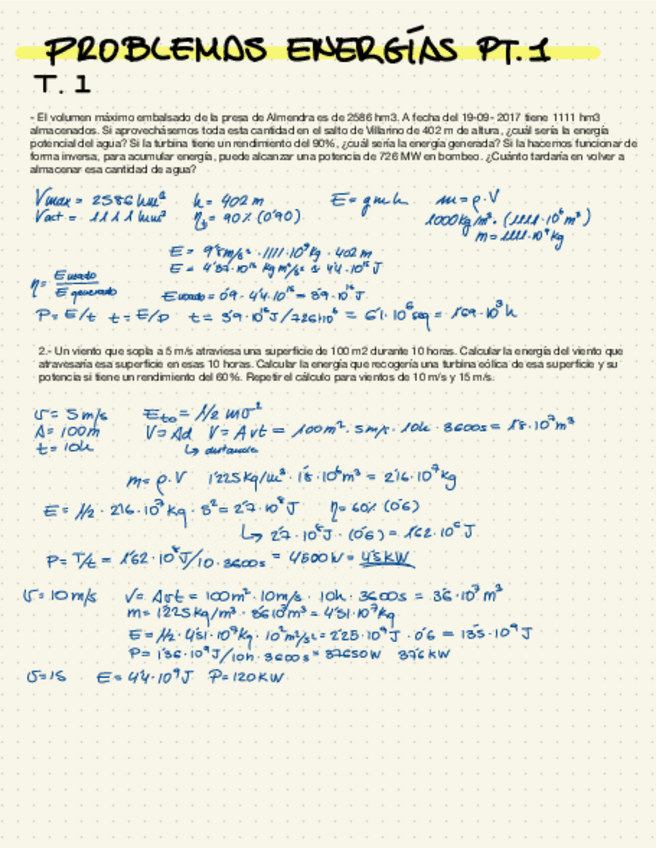 PROBLEMAS ENERGÍAS PT.1
T. 1
- El volumen máximo embalsado de la presa de Almendra es de 2586 hm3. A fecha del 19-09- 2017 tiene 1111 hm3
almacenados. Si aprovechásemos toda esta cantidad en el salto de Villarino de 402 m de altura, ¿cuál sería la energía
potencial del agua? Si la turbina tiene un rendimiento del 90%, ¿cuál sería la energía generada? Si la hacemos funcionar de
forma inversa, para acumular energía, puede alcanzar una potencia de 726 MW en bombeo. ¿Cuánto tardaría en volver a
almacenar esa cantidad de agua?
Vmax = 2586 hm³ h = 402 m E = g m h m = ρ · V
Vact = 1111 hm³ η = 90% (0'90) 1000 kg/m³ · (1111·10⁶ m³)
m = 1111·10⁹ kg
E = 9'8 m/s² · 1111·10⁹ kg · 402 m
E = 4'37·10¹⁵ kg m²/s² ≈ 4'4·10¹⁵ J
η = E usado / E generado E usado = 0'9 · 4'4·10¹⁵ = 3'9·10¹⁵ J
P = E/t t = E/P t = 3'9·10¹⁵ J / 726·10⁶ = 6'1·10⁶ seg = 1'69·10³ h
2.- Un viento que sopla a 5 m/s atraviesa una superficie de 100 m2 durante 10 horas. Calcular la energía del viento que
atravesaría esa superficie en esas 10 horas. Calcular la energía que recogería una turbina eólica de esa superficie y su
potencia si tiene un rendimiento del 60%. Repetir el cálculo para vientos de 10 m/s y 15 m/s.
v = 5 m/s E = 1/2 mv²
A = 100 m V = Ad V = Avt = 100 m² · 5 m/s · 10h · 3600s = 1'8·10⁷ m³
t = 10h ↳ distancia
m = ρ · V 1'225 kg/m³ · 1'8·10⁶ m³ = 2'16·10⁷ kg
E = 1/2 · 2'16·10⁷ kg · 5² = 2'7·10⁸ J η = 60% (0'6)
↳ 2'7·10⁸ J · (0'6) = 1'62·10⁸ J
P = T/t = 1'62·10⁸ J / 10 · 3600s = 4500 W = 4'5 KW
v = 10 m/s V = Avt = 100 m² · 10 m/s · 10h · 3600s = 3'6·10⁷ m³
m = 1'225 kg/m³ · 3'6·10⁷ m³ = 4'51·10⁷ kg
E = 1/2 · 4'51·10⁷ kg · 10² m²/s² = 2'25·10⁹ J · 0'6 = 1'35·10⁹ J
P = 1'36·10⁹ J / 10h · 3600s = 37650 W 37'6 KW
v = 15 E = 4'4·10⁹ J P = 120 KW